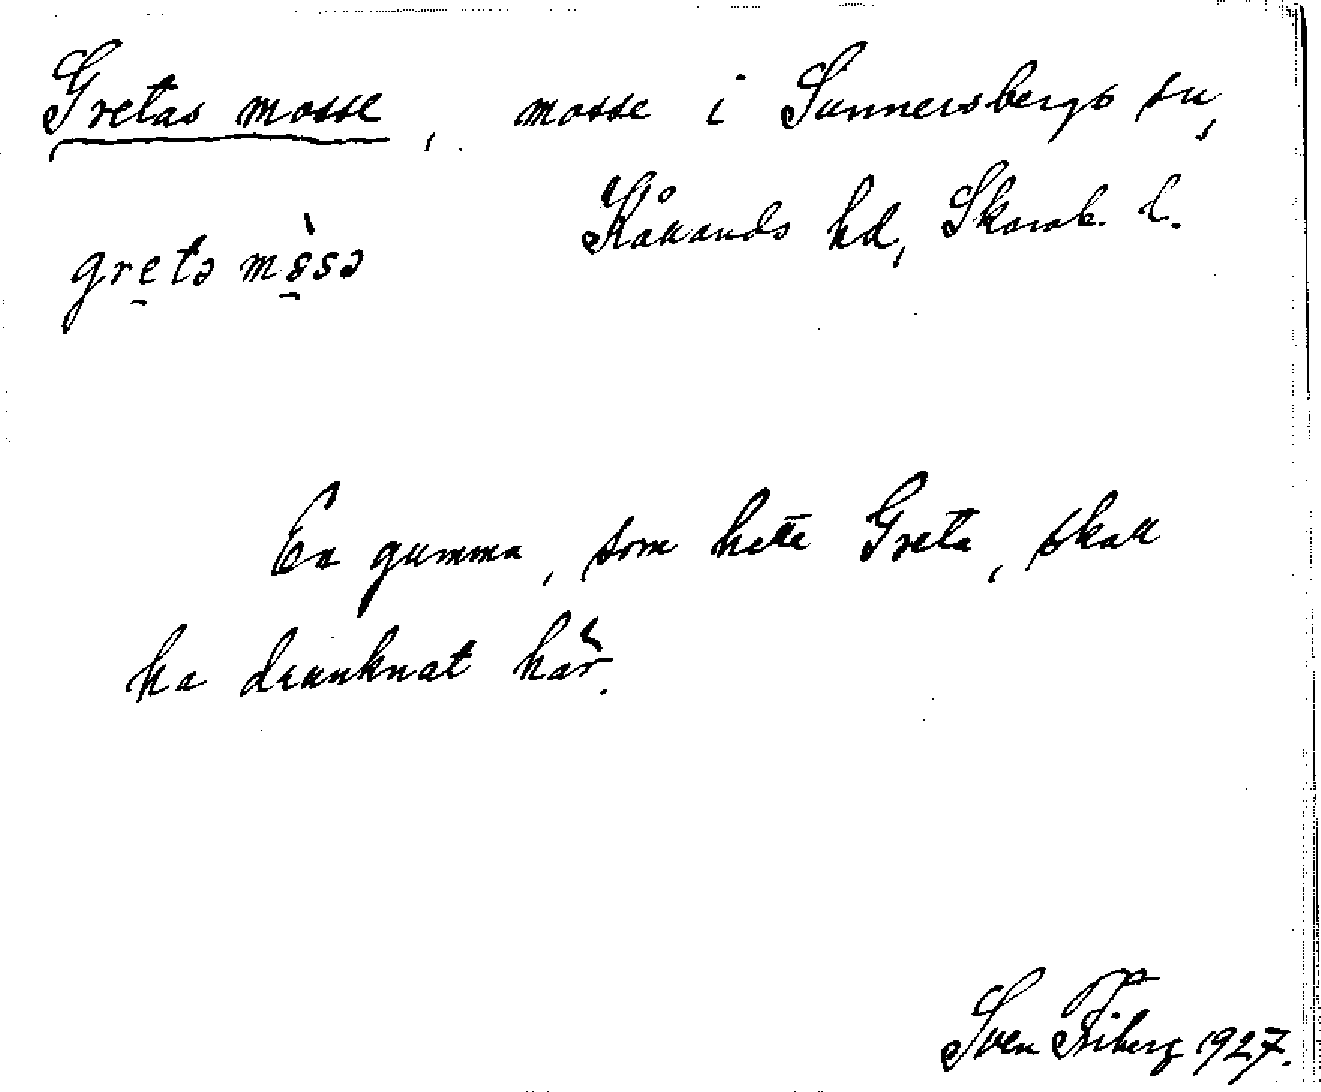 Gretas mosse, mosse i Sunnersbergs sn,
Kållands hd, Skarab. l.
gretə mòsə
En gumma, som hette Greta, skall
ha drunknat här.
Sven Friberg 1927.